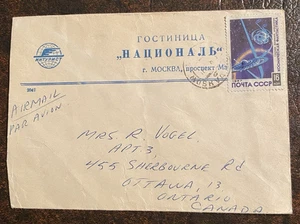 ГОСТИНИЦА
„НАЦИОНАЛЬ“
г. МОСКВА, проспект Ма
ИНТУРИСТ
ПОЧТА СССР
МОСКВА
AIRMAIL
PAR AVION
MRS R VOGEL
APT. 3,
455 SHERBOURNE Rd
OTTAWA, 13
ONTARIO
CANADA